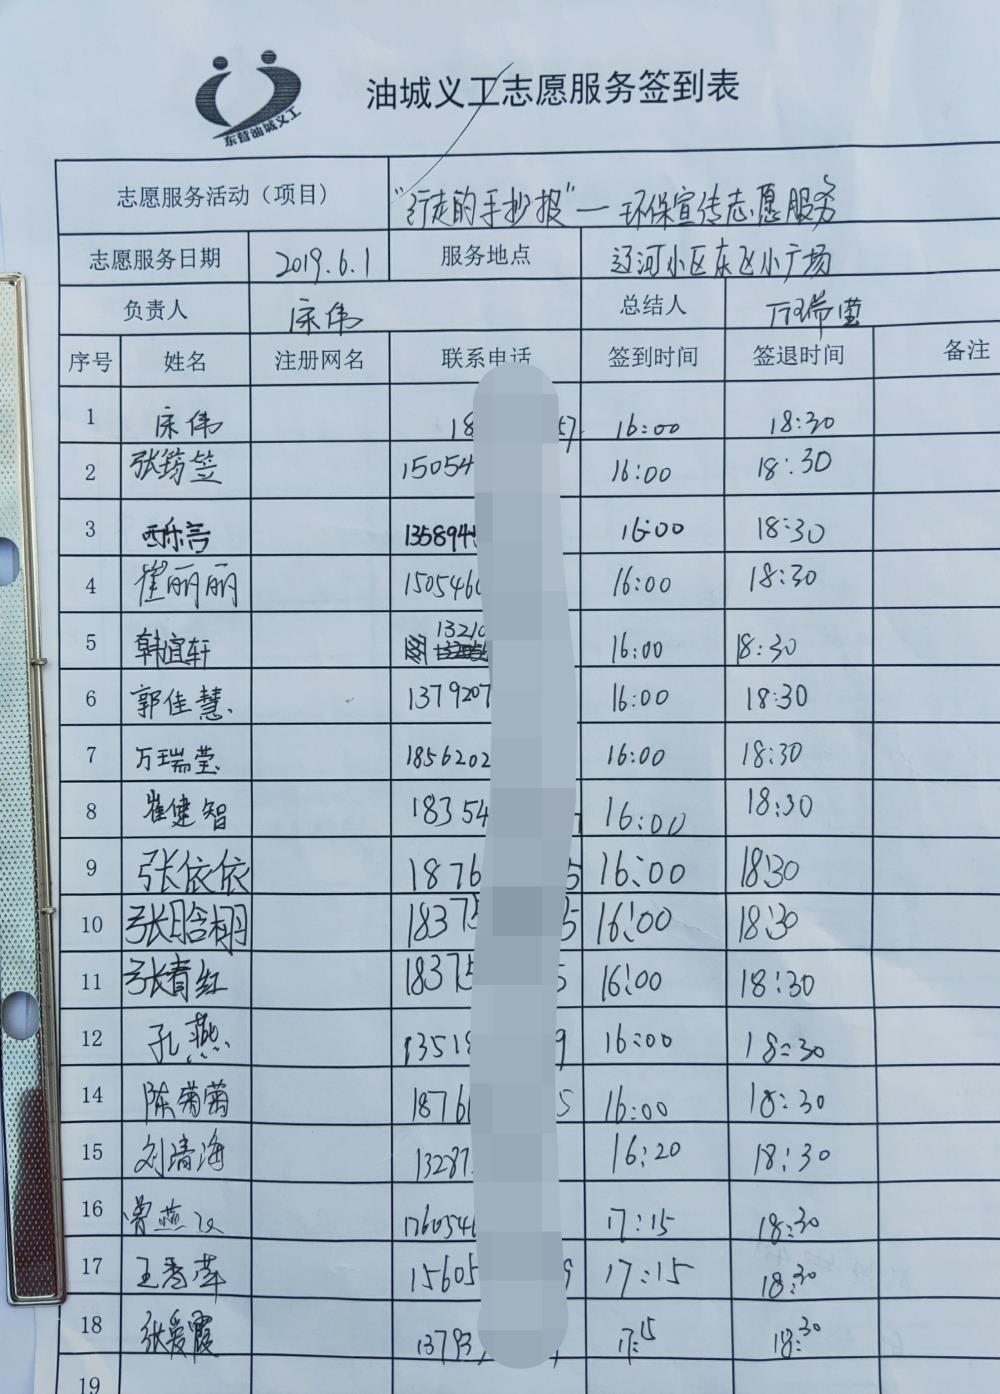 东营油城义工
油城义工志愿服务签到表
志愿服务活动（项目） “行走的手抄报”一环保宣传志愿服务
志愿服务日期 2019.6.1 服务地点 辽河小区东区小广场
负责人 宋伟 总结人 万瑞莹
序号 姓名 注册网名 联系电话 签到时间 签退时间 备注
1 宋伟 18 57 16:00 18:30
2 张筠笠 15054 16:00 18:30
3 1358945 16:00 18:30
4 崔丽丽 1505460 16:00 18:30
5 韩谊轩 13210 16:00 18:30
6 郭佳慧 1379207 16:00 18:30
7 万瑞莹 1856202 16:00 18:30
8 崔健智 18354 16:00 18:30
9 张依依 1876 5 16:00 18:30
10 张晗栩 18375 5 16:00 18:30
11 张春红 18375 5 16:00 18:30
12 孔燕 13518 9 16:00 18:30
14 陈菊菊 1876 5 16:00 18:30
15 刘清海 13287 16:20 18:30
16 曾燕 1760546 17:15 18:30
17 王秀萍 15605 9 17:15 18:30
18 张爱霞 13793 17:15 18:30
19